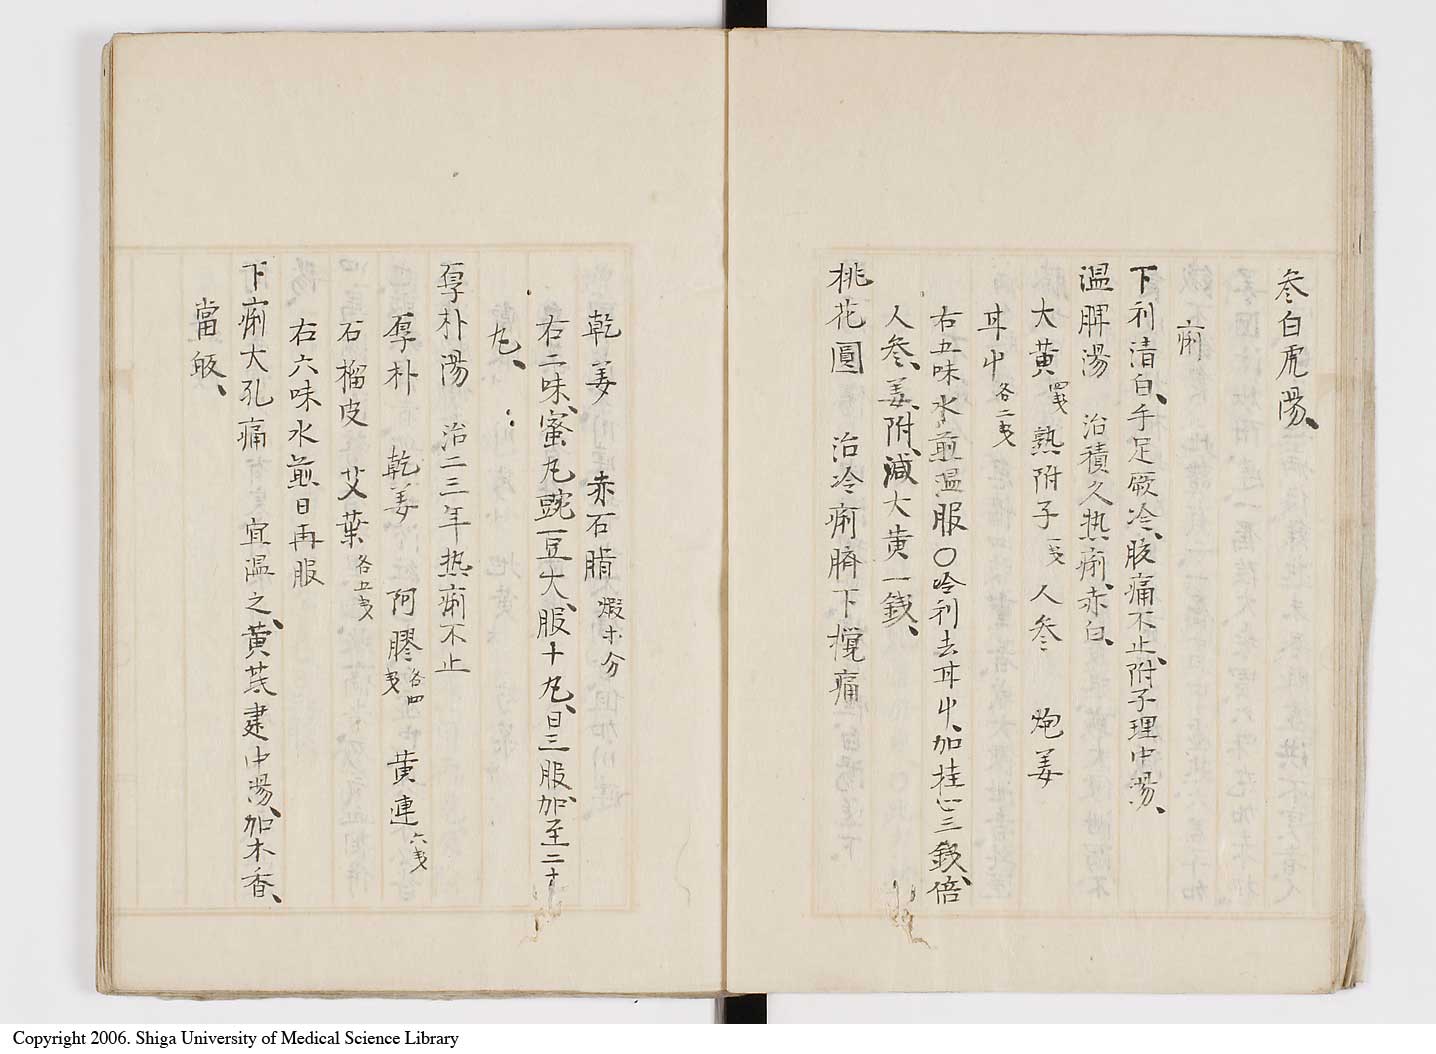 参白虎湯、
痢
下利清白、手足厥冷、腹痛不止、附子理中湯、
温脾湯 治積久热痢、赤白、
大黄四戔 熟附子一戔 人参 炮姜
甘屮各二戔
右五味水煎温服〇冷利去甘屮、加桂心三錢、倍
人参、姜附、減大黄一錢、
桃花圓 治冷痢臍下攪痛
乾姜 赤石脂煅等分
右二味、蜜丸豌豆大、服十丸、日三服、加至二十
丸、
厚朴湯 治二三年热痢不止
厚朴 乾姜 阿膠各四戔 黄連六戔
石榴皮 艾葉各五戔
右六味水煎日再服
下痢大孔痛 宜温之、黄芪建中湯、加木香、
當皈、
Copyright 2006. Shiga University of Medical Science Library